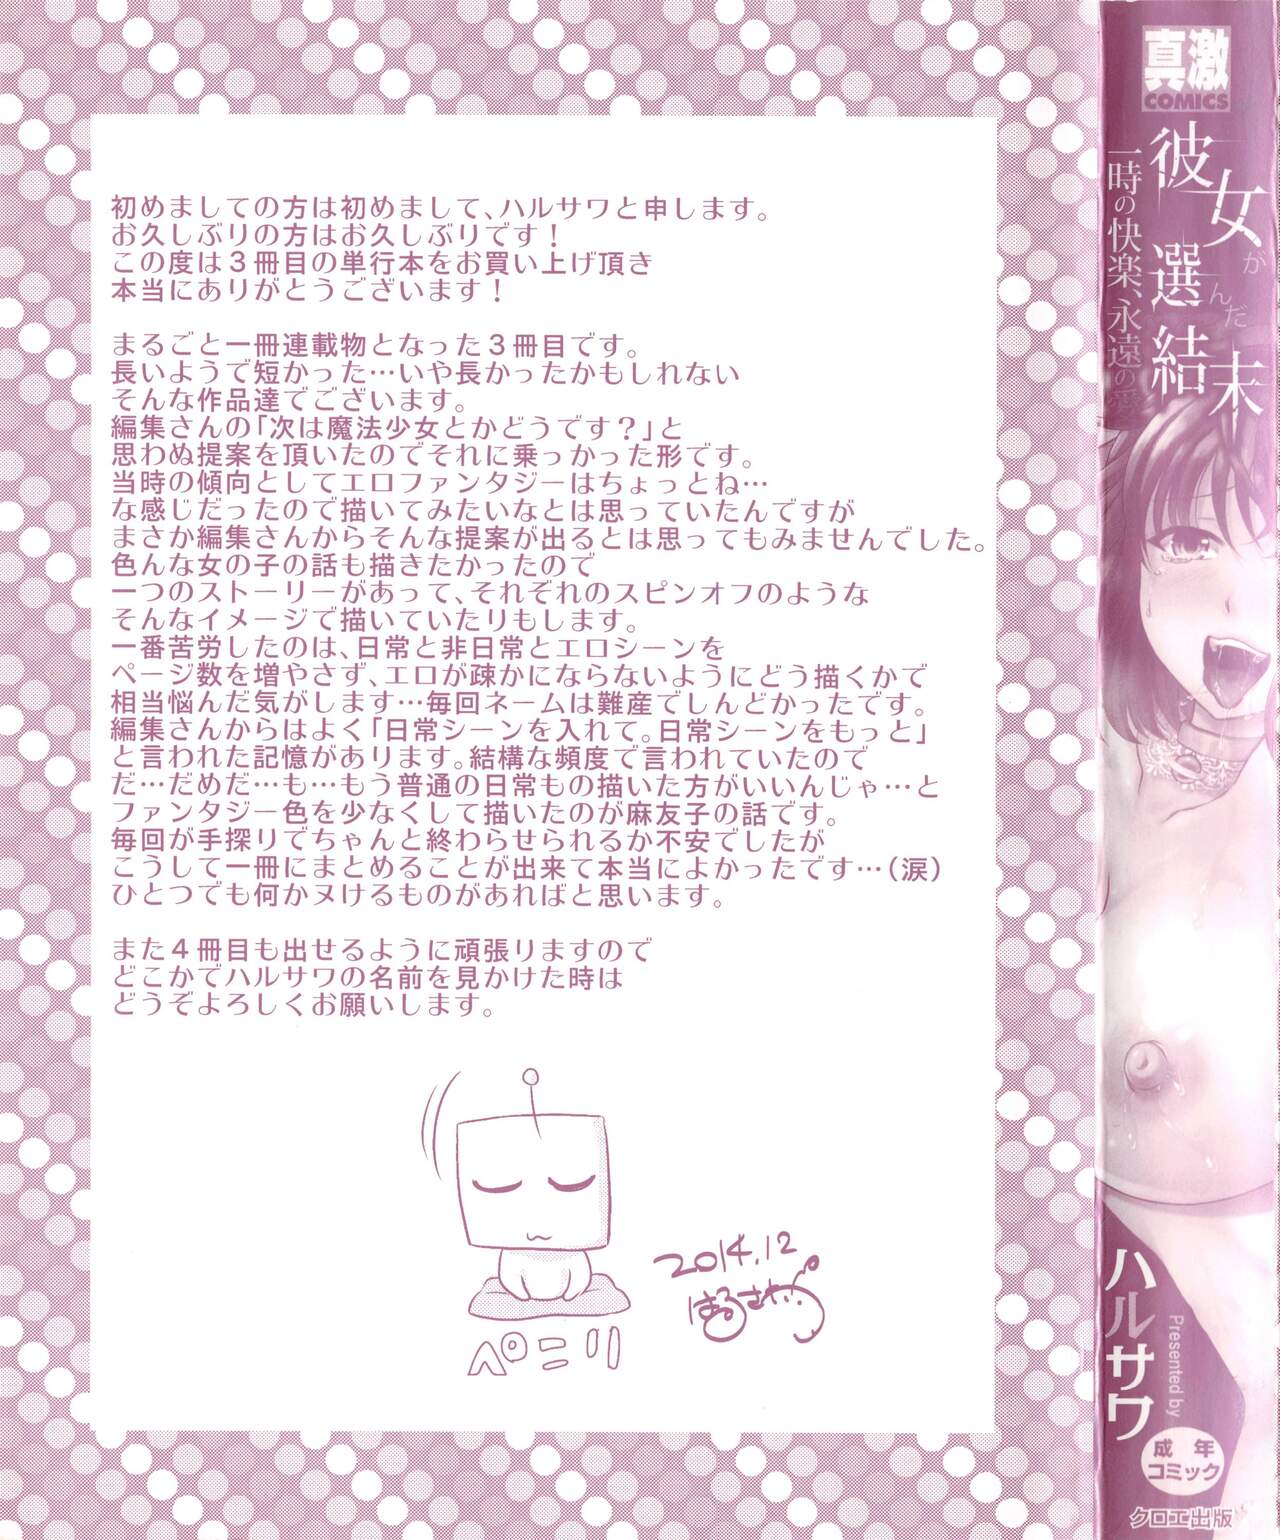 初めましての方は初めまして、ハルサワと申します。
お久しぶりの方はお久しぶりです！
この度は３冊目の単行本をお買い上げ頂き
本当にありがとうございます！
まるごと一冊連載物となった３冊目です。
長いようで短かった…いや長かったかもしれない
そんな作品達でございます。
編集さんの「次は魔法少女とかどうです？」と
思わぬ提案を頂いたのでそれに乗っかった形です。
当時の傾向としてエロファンタジーはちょっとね…
な感じだったので描いてみたいなとは思っていたんですが
まさか編集さんからそんな提案が出るとは思ってもみませんでした。
色んな女の子の話も描きたかったので
一つのストーリーがあって、それぞれのスピンオフのような
そんなイメージで描いていたりもします。
一番苦労したのは、日常と非日常とエロシーンを
ページ数を増やさず、エロが疎かにならないようにどう描くかで
相当悩んだ気がします…毎回ネームは難産でしんどかったです。
編集さんからはよく「日常シーンを入れて。日常シーンをもっと」
と言われた記憶があります。結構な頻度で言われていたので
だ…だめだ…も…もう普通の日常もの描いた方がいいんじゃ…と
ファンタジー色を少なくして描いたのが麻友子の話です。
毎回が手探りでちゃんと終わらせられるか不安でしたが
こうして一冊にまとめることが出来て本当によかったです…（涙）
ひとつでも何かヌけるものがあればと思います。
また４冊目も出せるように頑張りますので
どこかでハルサワの名前を見かけた時は
どうぞよろしくお願いします。
ペコリ
2014.12
はるさわ
真激
COMICS
彼女が選んだ結末
一時の快楽、永遠の愛
ハルサワ
Presented by
成年
コミック
クロエ出版